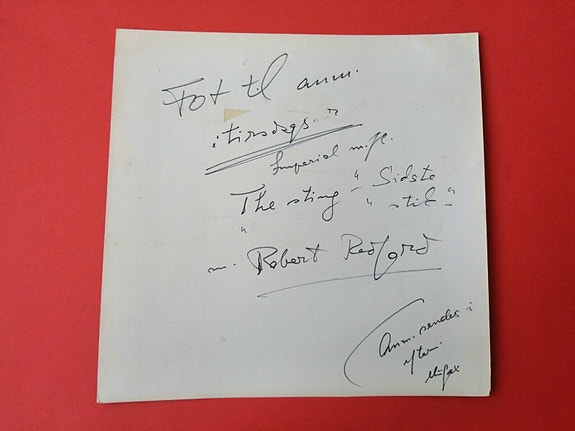 Fot til anm.
i tirsdags
Imperial m.fl.
"The sting" - "Sidste
stik"
m. Robert Redford
(Anm. sendes i
eftm.